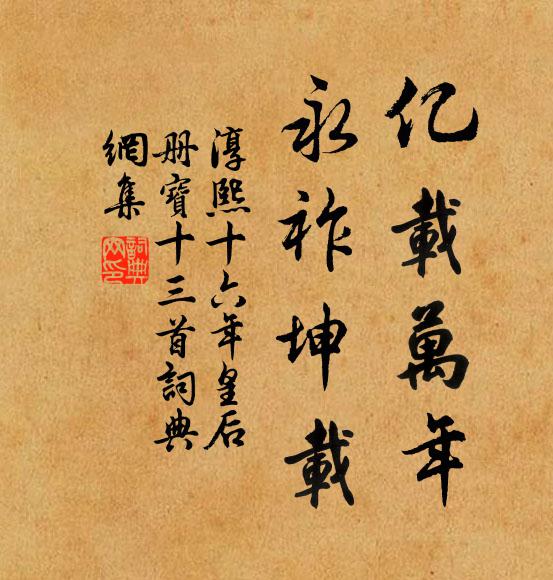 亿載萬年
永祚坤載
淳熙十六年皇后
册寶十三首詞典
網集
詞典網印